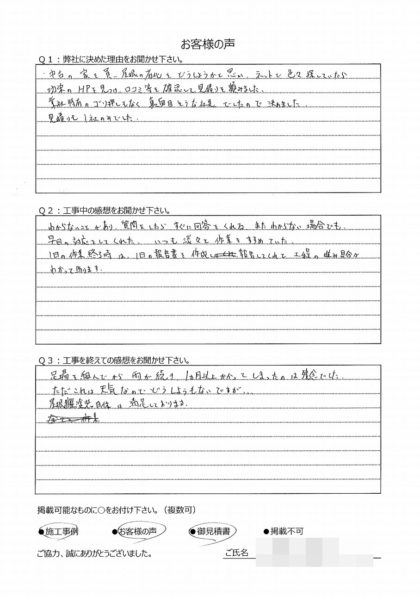 お客様の声
Q1：弊社に決めた理由をお聞かせ下さい。
・中古の家を買い、屋根の劣化をどうしようかと思い、ネットで色々探していたら
HPを見つけ、口コミ等を確認して見積りを頼みました。
ゴリ押しもなく、真面目そうな社長でしたので決めました。
見積りも1社のみでした。
Q2：工事中の感想をお聞かせ下さい。
わからないことがあり、質問をしたらすぐに回答をくれる、またわからない場合でも、
早目の対応をしてくれた。いつも淡々と作業をすすめていた。
1日の作業終了時は、1日の報告書を作成し報告してくれて工程の進み具合が
わかって助かります。
Q3：工事を終えての感想をお聞かせ下さい。
足場を組んでから雨が続き、1ヵ月以上かかってしまったのは残念でした。
ただこれは天気なのでどうしようもないですが...
屋根塗装自体は満足しております。
掲載可能なものに○をお付け下さい。（複数可）
●施工事例 ●お客様の声 ●御見積書 ●掲載不可
ご協力、誠にありがとうございました。 ご氏名